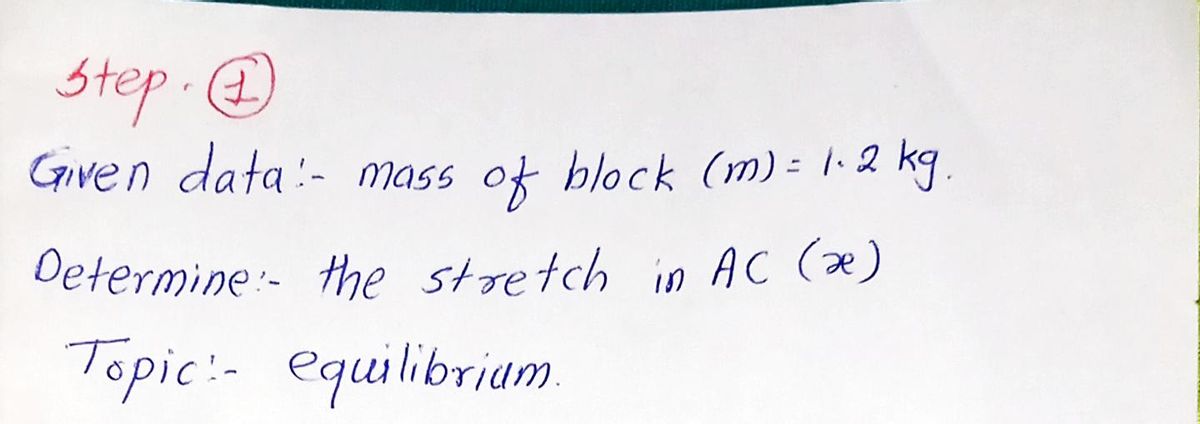 Step. ①
Given data:- mass of block (m) = 1.2 kg.
Determine:- the stretch in AC (x)
Topic:- equilibrium.